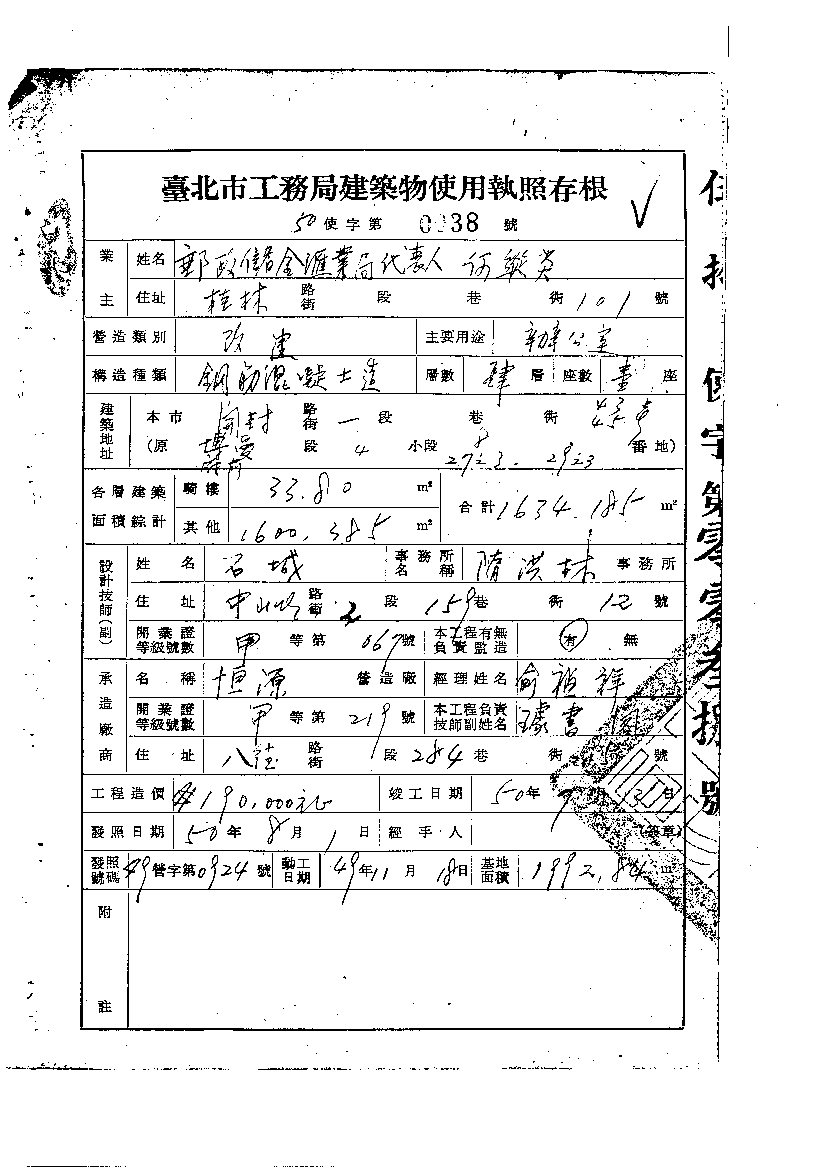 臺北市工務局建築物使用執照存根
50使字第 0038 號
業主 姓名 郵政儲金匯業局代表人 何縱炎
住址 桂林 路街 段 巷 街 101 號
營造類別 改建 主要用途 辦公室
構造種類 鋼筋混凝土造 層數 肆 層 座數 壹 座
建築地址 本市 開封 路街 一 段 巷 街 號
(原 段 4 小段 番地)
各層建築面積綜計 騎樓 33.80 m² 合計 1634.185 m²
其他 1600.385 m²
設計技師(副) 姓名 石城 事務所名稱 隋洪林 事務所
住址 中山 路街 2 段 159 巷 街 12 號
開業證等級號數 甲 等第 067 號 本工程有無負責監造 有 無
承造廠商 名稱 恒源 營造廠 經理姓名 俞禎祥
開業證等級號數 甲 等第 219 號 本工程負責技師副姓名 書
住址 八德 路街 段 284 巷 街 號
工程造價 190,000元 竣工日期 50年 7 月 3 日
發照日期 50年 8 月 1 日 經手人 (簽章)
發照號碼 49營字第0924號 動工日期 49年11月18日 基地面積 1992.84 m²
附註
使字第零零叁捌號